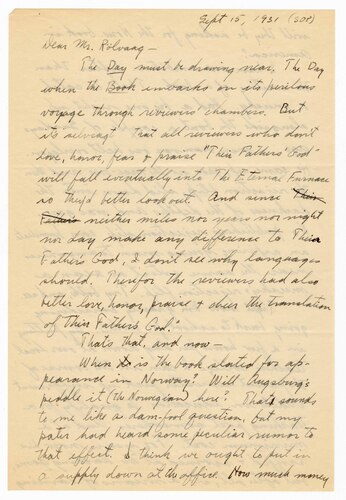 Sept 15, 1931 (SOP)
Dear Mr. Rolvaag —
The Day must be drawing near, The Day
when the Book embarks on its perilous
voyage through reviewers chambers. But
its selvsagt that all reviewers who don't
love, honor, fear & praise "Their Fathers' God"
will fall eventually into The Eternal Furnace
so they'd better look out. And since Their
Fathers neither miles nor years nor night
nor day make any difference to Their
Father's God, I don't see why languages
should. Therefor the reviewers had also
better love, honor, praise & obey the translation
of Their Father's God."
Thats that, and now —
When is the book slated for ap-
pearance in Norway? Will Augsburg
peddle it (the Norwegian) here? That sounds
to me like a dam-fool question, but my
pater had heard some peculiar rumor to
that effect. I think we ought to put in
a supply down at the office. How much money